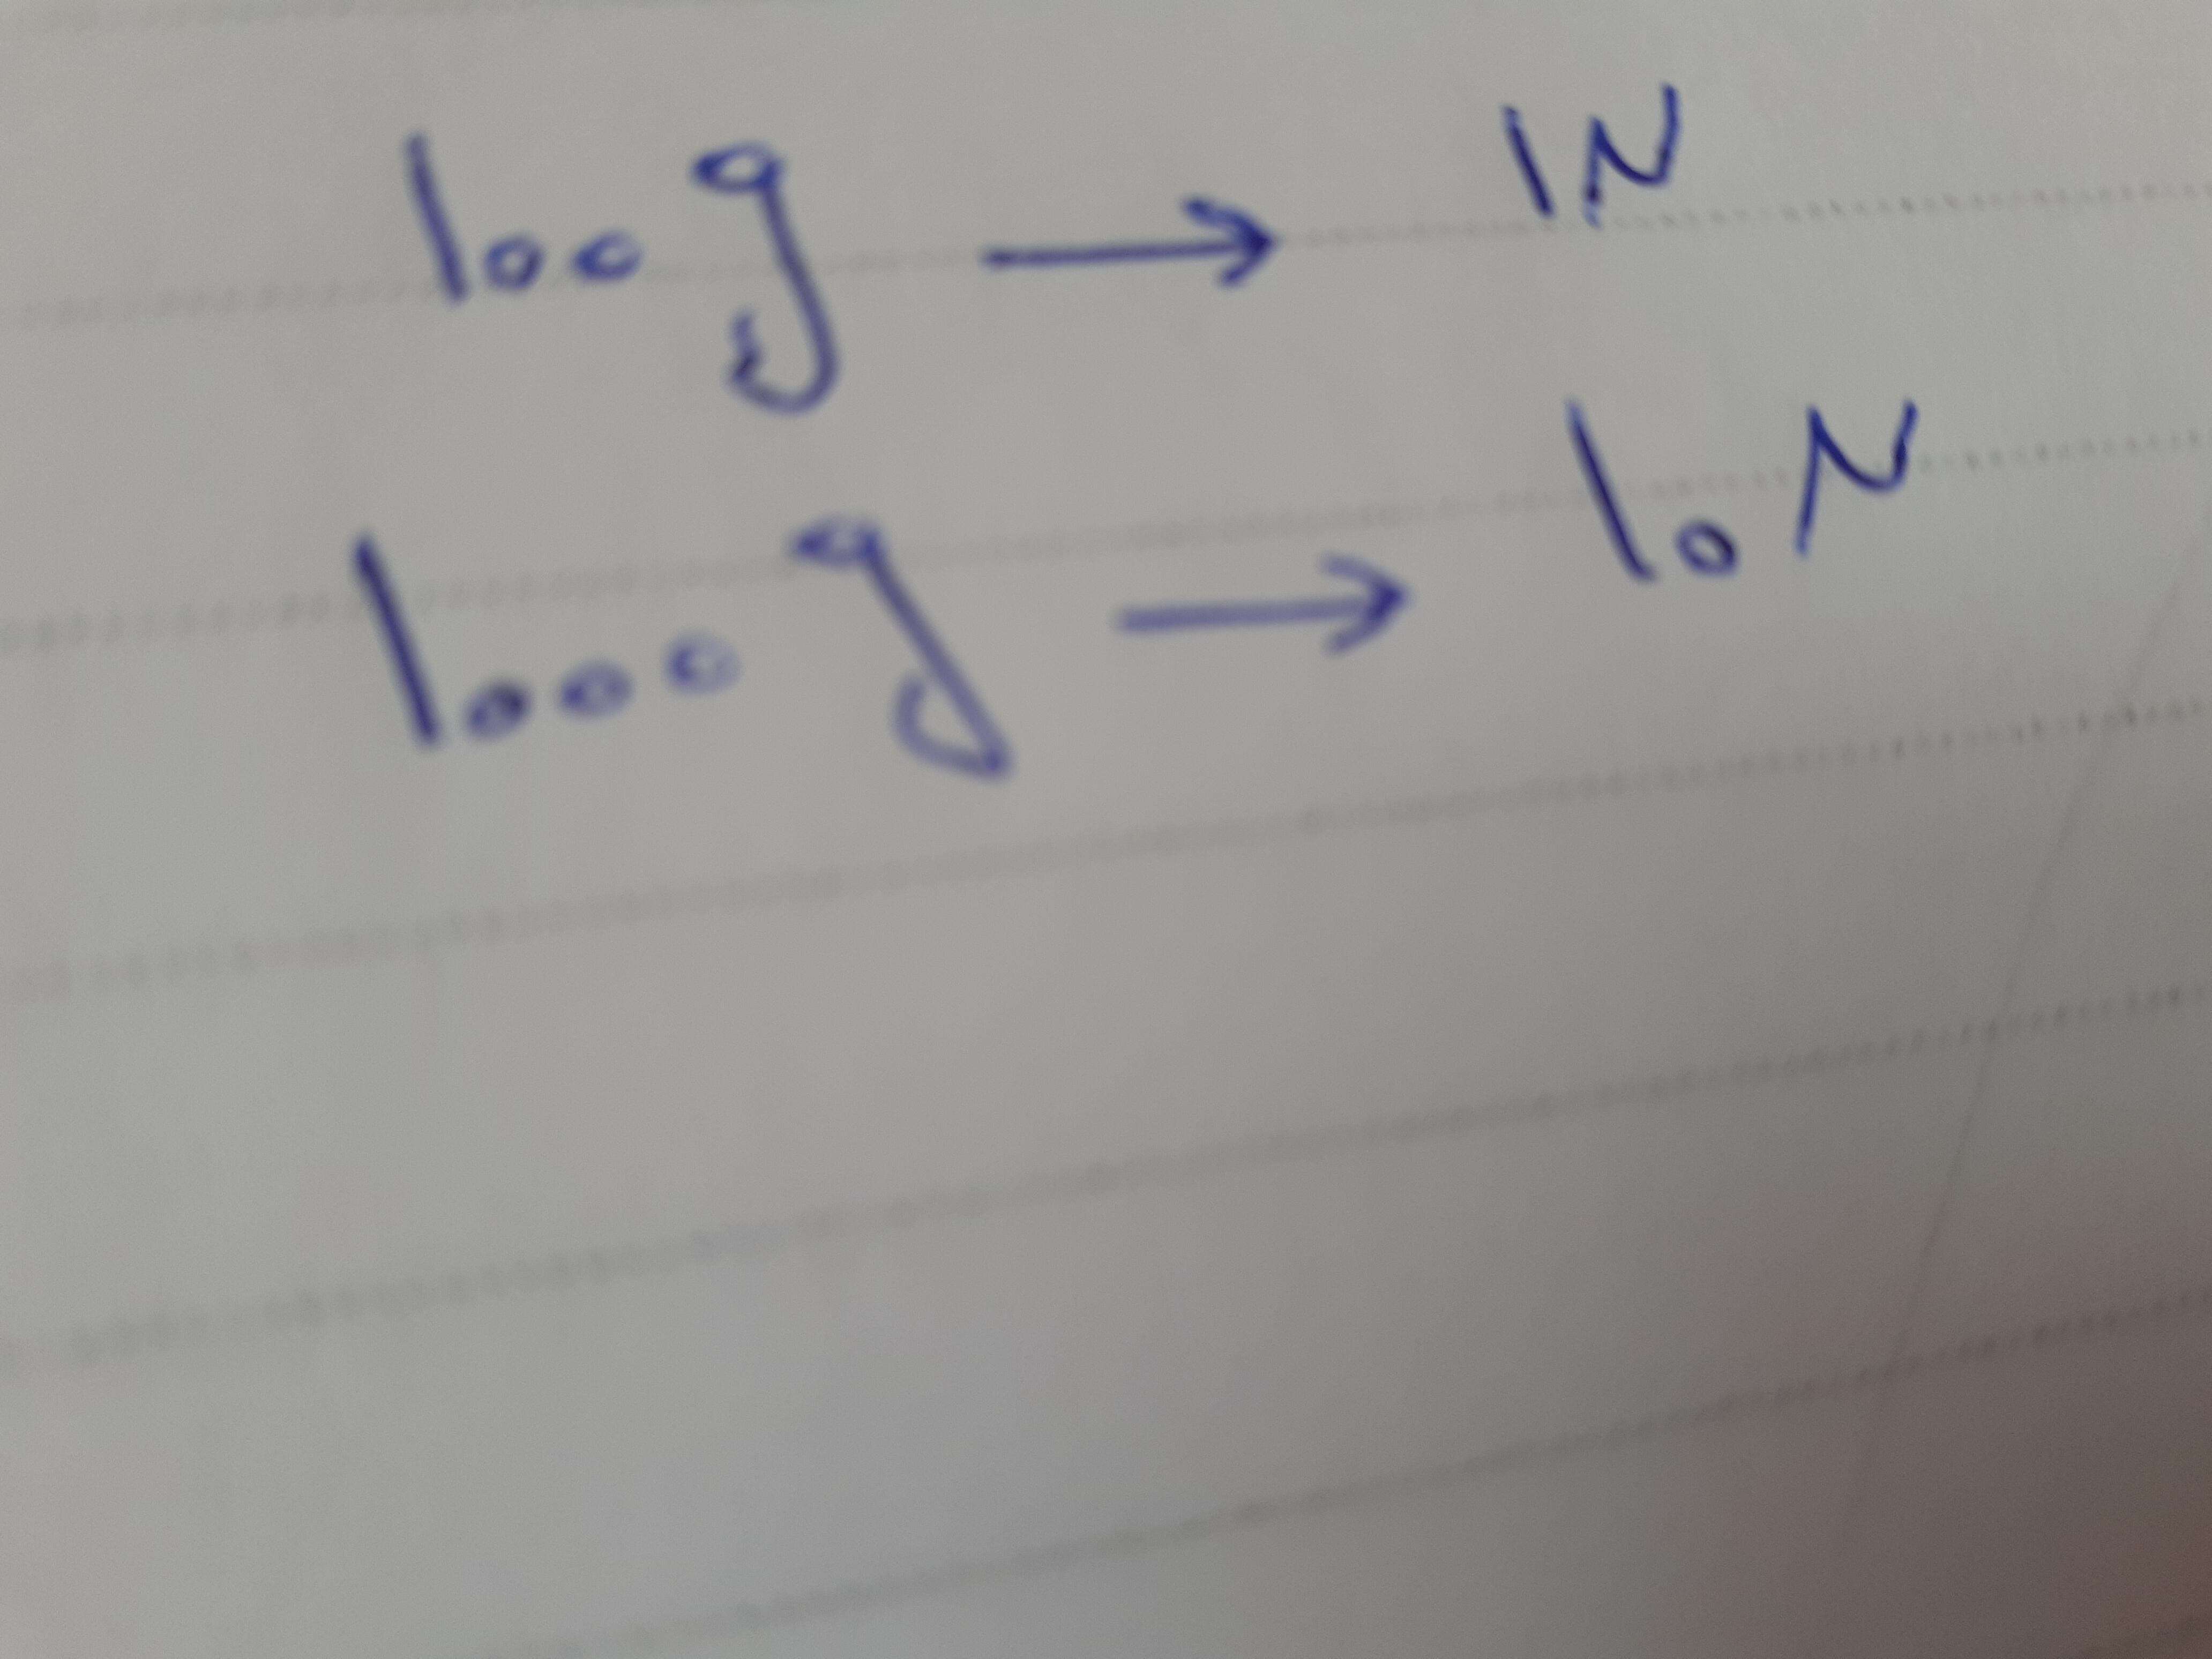 100 g → 1N
1000 g → 10N